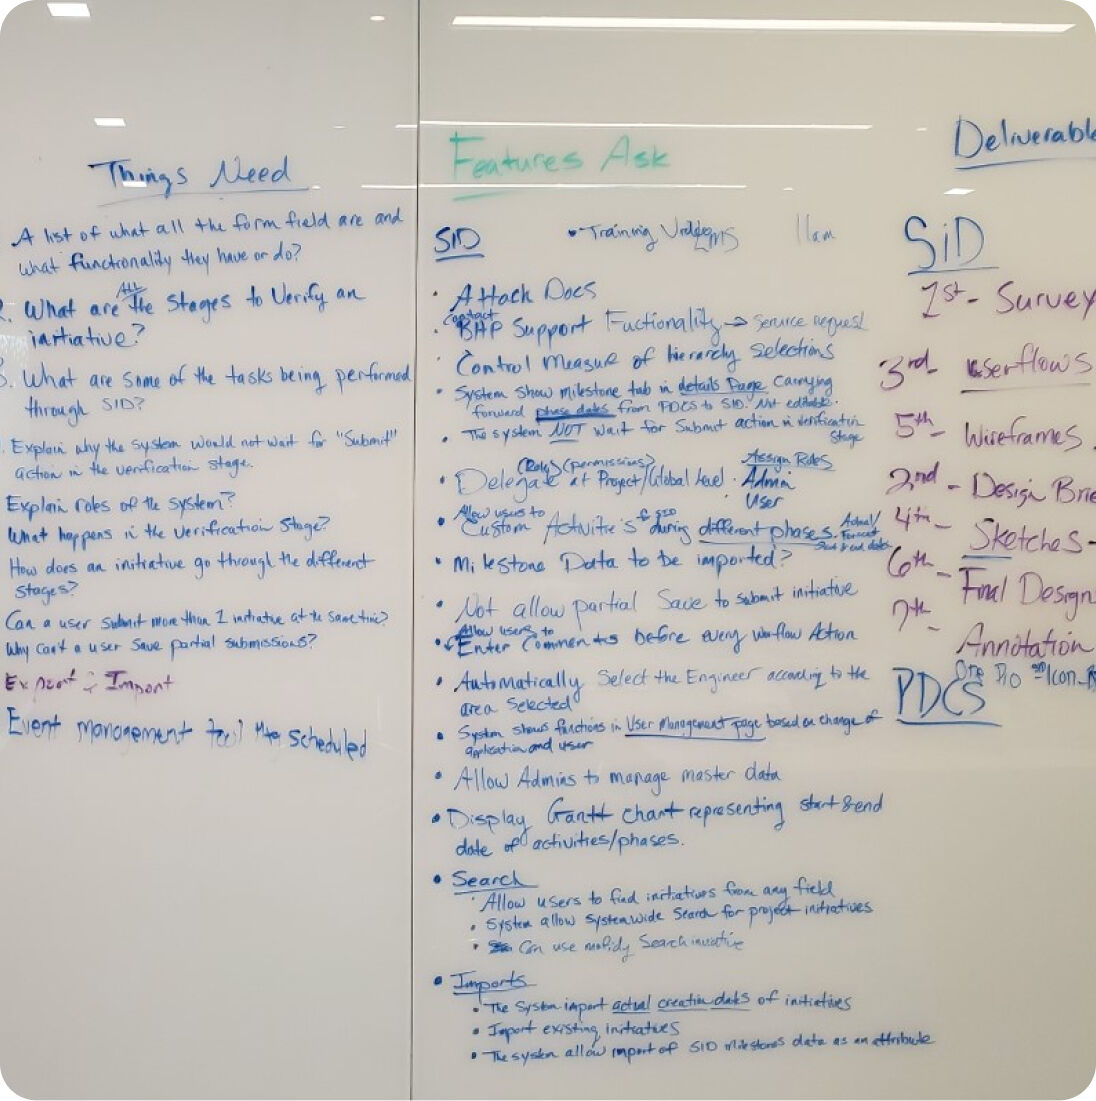 Things Need
A list of what all the form field are and
what functionality they have or do?
What are ALL the stages to Verify an
initiative?
3. What are some of the tasks being performed
through SID?
Explain why the system would not wait for "Submit"
action in the verification stage.
Explain roles of the system?
What happens in the verification stage?
How does an initiative go through the different
stages?
Can a user submit more than 1 initiative at the same time?
Why can't a user save partial submissions?
Export : Import
Event management tool scheduled
Features Ask
SID
• Training 11am
• Attach Docs
• Contact BHP Support Fuctionality → Service request
• Control Measure of hierarchy selections
• System show milestone tab in details Page Carrying
forward phase dates from PDCS to SID. Not editable.
• The system NOT wait for Submit action in verification
Stage
• Delegate (Roles) (permissions) at Project/Global level •
Assign Roles
Admin
User
• Allow users to
Custom Activitie's during different phases.
• Milestone Data to be imported?
• Not allow partial Save to submit initiative
• Allow users to
Enter Comments before every workflow Action
• Automatically Select the Engineer according to the
area selected
• System shows functions in User Management page based on change of
application and user
• Allow Admins to manage master data
• Display Gantt chart representing start & end
date of activities/phases.
• Search
• Allow users to find initiatives from any field
• System allow system wide Search for project initiatives
• Can use Search
• Imports
• The System import actual creation dates of initiatives
• Import existing initiatives
• The system allow import of SID milestones data as an attribute
Deliverable
SiD
1st - Survey
3rd - userflows
5th - Wireframes
2nd - Design Brie
4th - Sketches -
6th - Final Design
7th - Annotation
PDCS